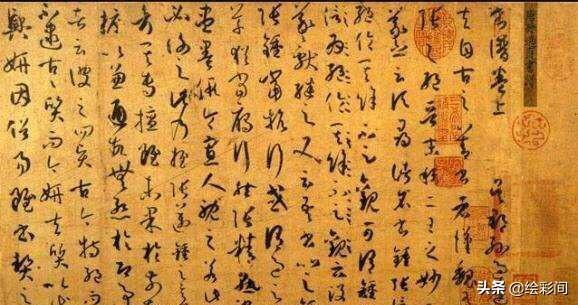 書譜卷上 吳郡孫過
夫自古之善書者漢魏
張之絕晉末稱二王之妙
羲之云頃尋諸名書鍾張
絕倫其餘不足觀可謂鍾
信為絕倫其餘不足觀云沒
羲獻繼之又云吾書比之
張鍾當抗行或謂過之
草猶當雁行然張精熟
盡墨假令寡人耽之若
必謝之此乃推張邁鍾之意
考其專擅雖未果於前
摭以兼通故無慚於即事
者云彼之四賢古今特絕而
不逮古古質而今妍夫質以
妍因俗易雖書契之
头条 @绘彩间